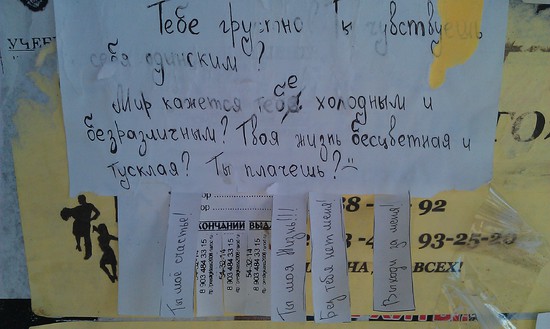 Тебе грустно? Ты чувствуешь
себя одиноким?
Мир кажется тебе холодным и
безразличным? Твоя жизнь бесцветная и
тусклая? Ты плачешь? :(
УЧЕБ
38 - 92
93-25-20
ВСЕХ!
КОНЧАНИИ ВЫДА
Ты моё счастье!
8 903 484 33 15
54-32-14
8 903 484 33 15
54-32-14
8 903 484 33 15
Ты моя Жизнь!!!
Без тебя нет меня!
Выходи за меня!